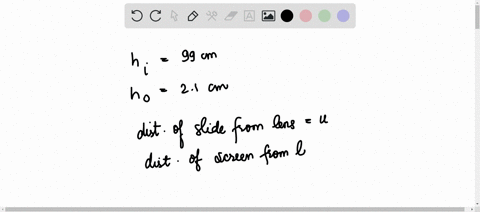 hi = 99 cm
ho = 2.1 cm
dist. of slide from lens = u
dist. of screen from l